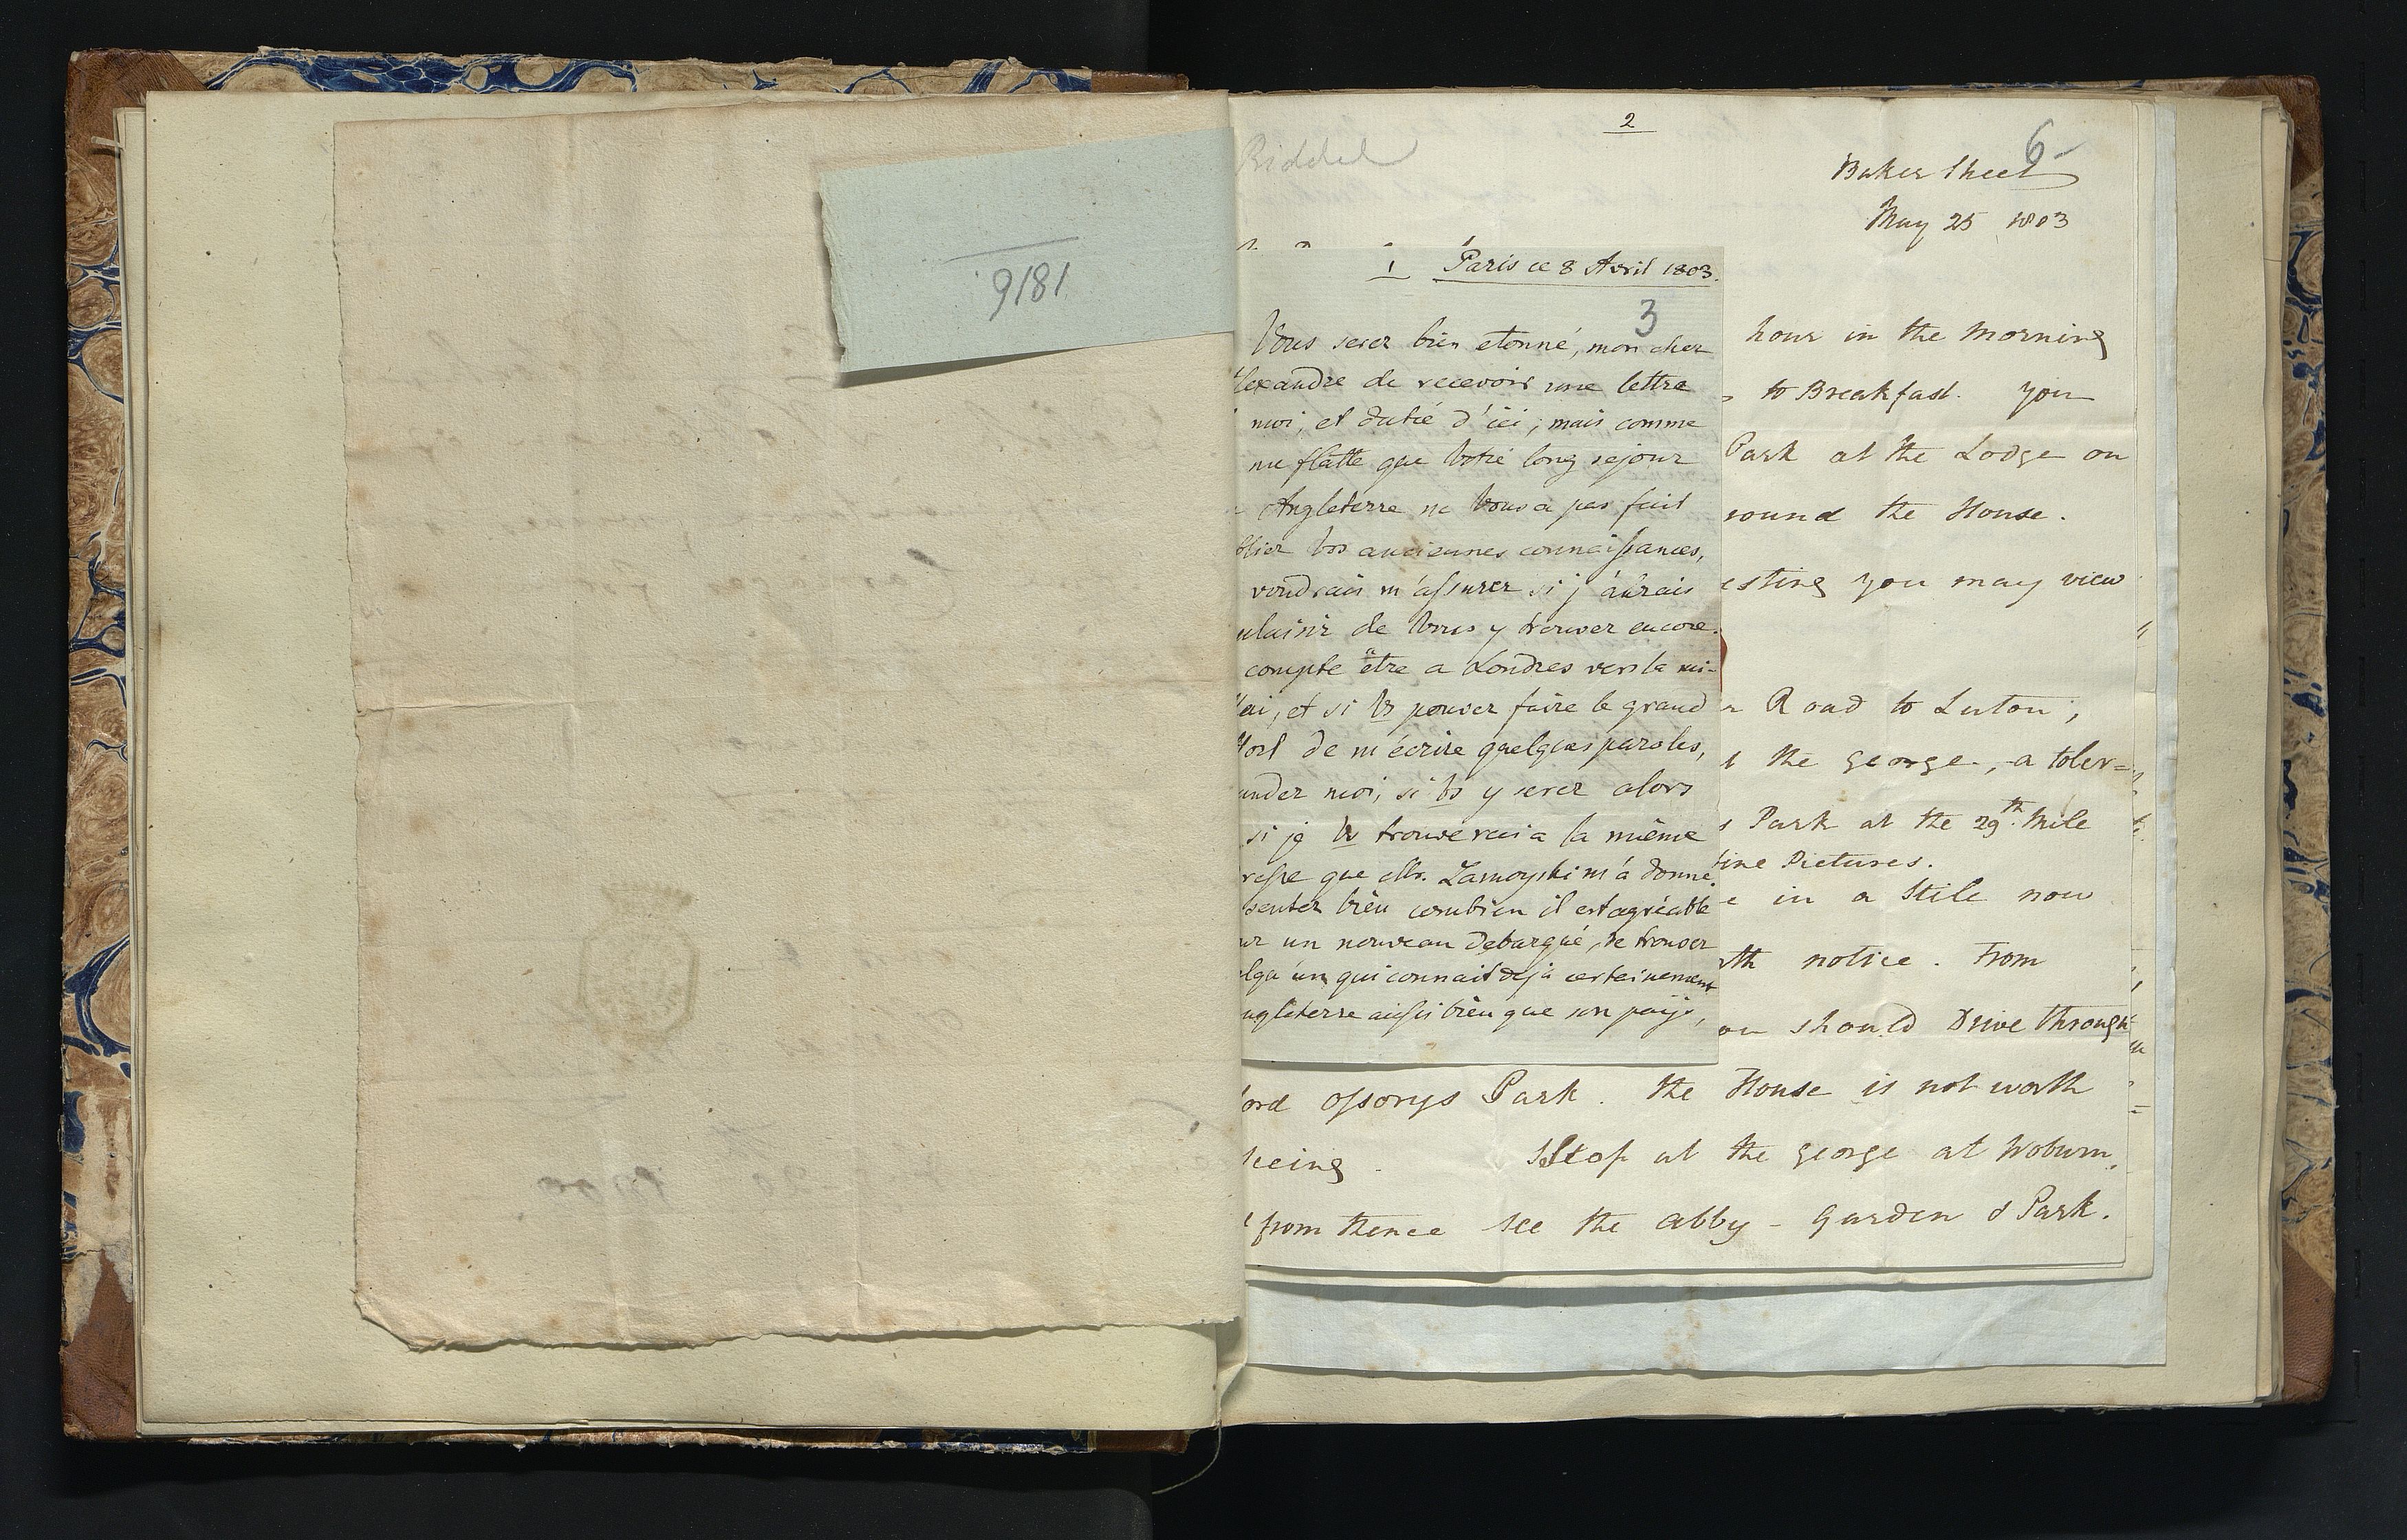 9181
Riddel
2
6
Baker Street
May 25 1803
1 Paris ce 8 Avril 1803.
3
Vous serez bien etonné, mon cher
lexandre de recevoir une lettre
moi, et datié d'ici; mais comme
me flatte que Votre long sejour
Angleterre ne Vous a pas fait
blier Vos anciennes connaissances,
voudrais m'assurer si j'aurais
plaisir de Vous y trouver encore.
compte être a Londres vers la mi-
ai, et si Vs pouvez faire le grand
fort de m'écrire quelques paroles,
andez moi, si Vs y serez alors
si je Vs trouverai a la même
resse que Mr. Zamoyski m'a donné.
sentez bien combien il est agréable
ur un nouveau debarqué, de trouver
elqu'un qui connait deja certainement
ngleterre aussi bien que son pays,
hour in the Morning
to Breakfast. you
Park at the Lodge on
round the House.
esting you may view
Road to Luton,
the george, a toler=
Park at the 29th Mile
fine Pictures.
in a Stile now
rth notice. From
ou should Drive through
ord Ossorys Park. the House is not worth
seeing. Stop at the george at Woburn,
from thence see the abby - Garden & Park.